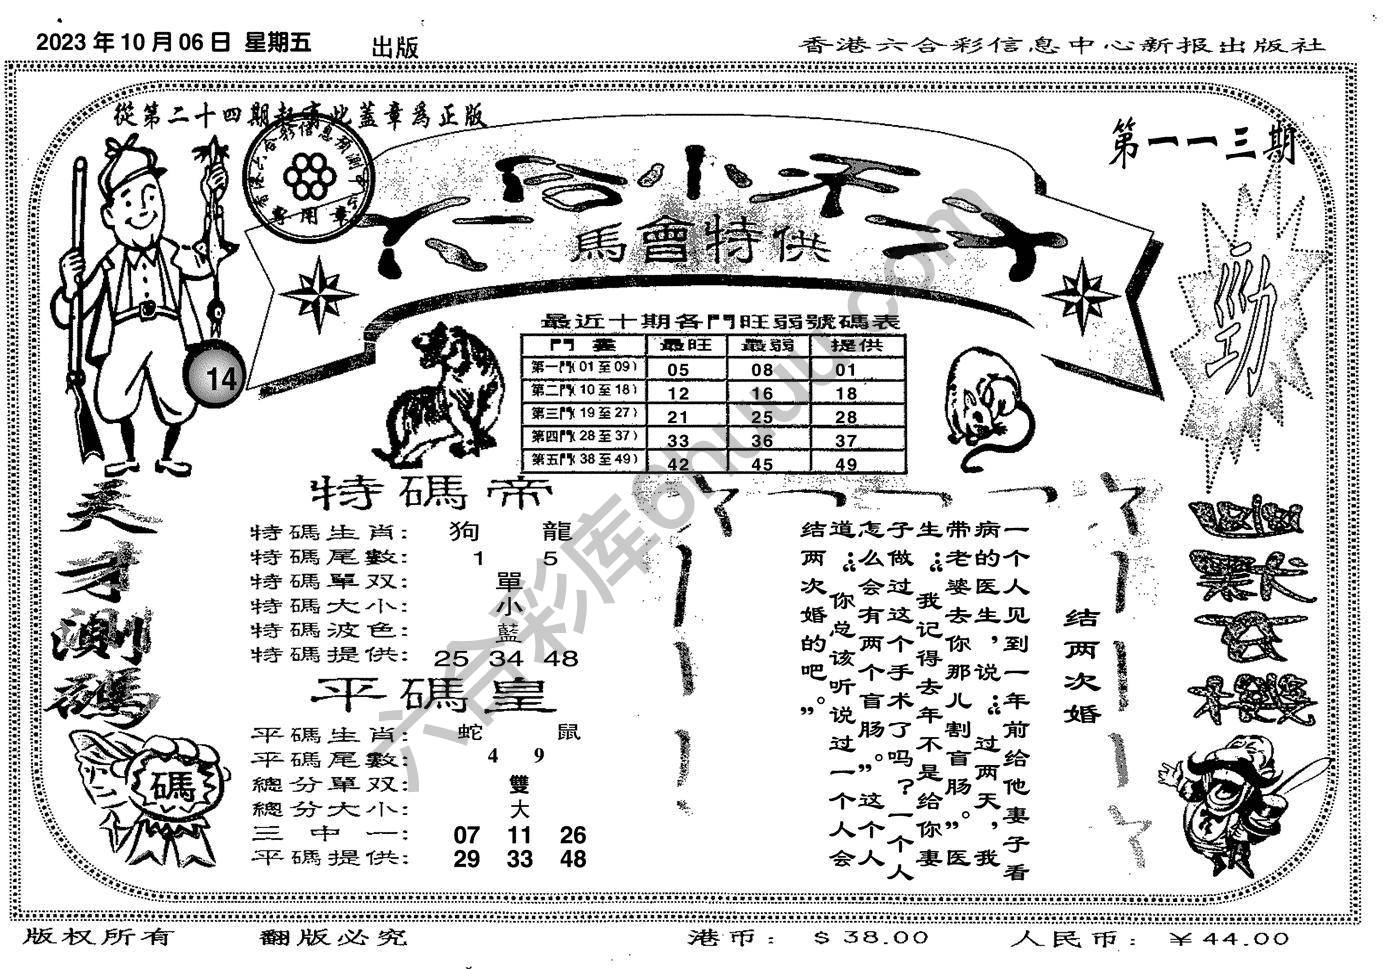 2023 年 10 月 06 日 星期五 出版
香港六合彩信息中心新报出版社
從第二十四期起有此蓋章爲正版
第一一三期
專用章
馬會特供
14
勁
最近十期各門旺弱號碼表
門 最旺 最弱 提供
第一門(01至09) 05 08 01
第二門(10至18) 12 16 18
第三門(19至27) 21 25 28
第四門(28至37) 33 36 37
第五門(38至49) 42 45 49
天才測碼
碼
特碼帝
特碼生肖: 狗 龍
特碼尾數: 1 5
特碼單双: 單
特碼大小: 小
特碼波色: 藍
特碼提供: 25 34 48
平碼皇
平碼生肖: 蛇 鼠
平碼尾數: 4 9
總分單双: 雙
總分大小: 大
三中一: 07 11 26
平碼提供: 29 33 48
结两次婚
一个人见到一年前给他妻子看
病的医生，说：“过两天，我
带老婆去你那儿割盲肠”。医
生：“我记得去年不是给你妻
子做过这个手术了吗？一个人
怎么会有两个盲肠”。这个人
道：“你总该听说过一个人会
结两次婚的吧”。
六合彩库6huuu.com
版权所有 翻版必究 港币： $38.00 人民币：￥44.00